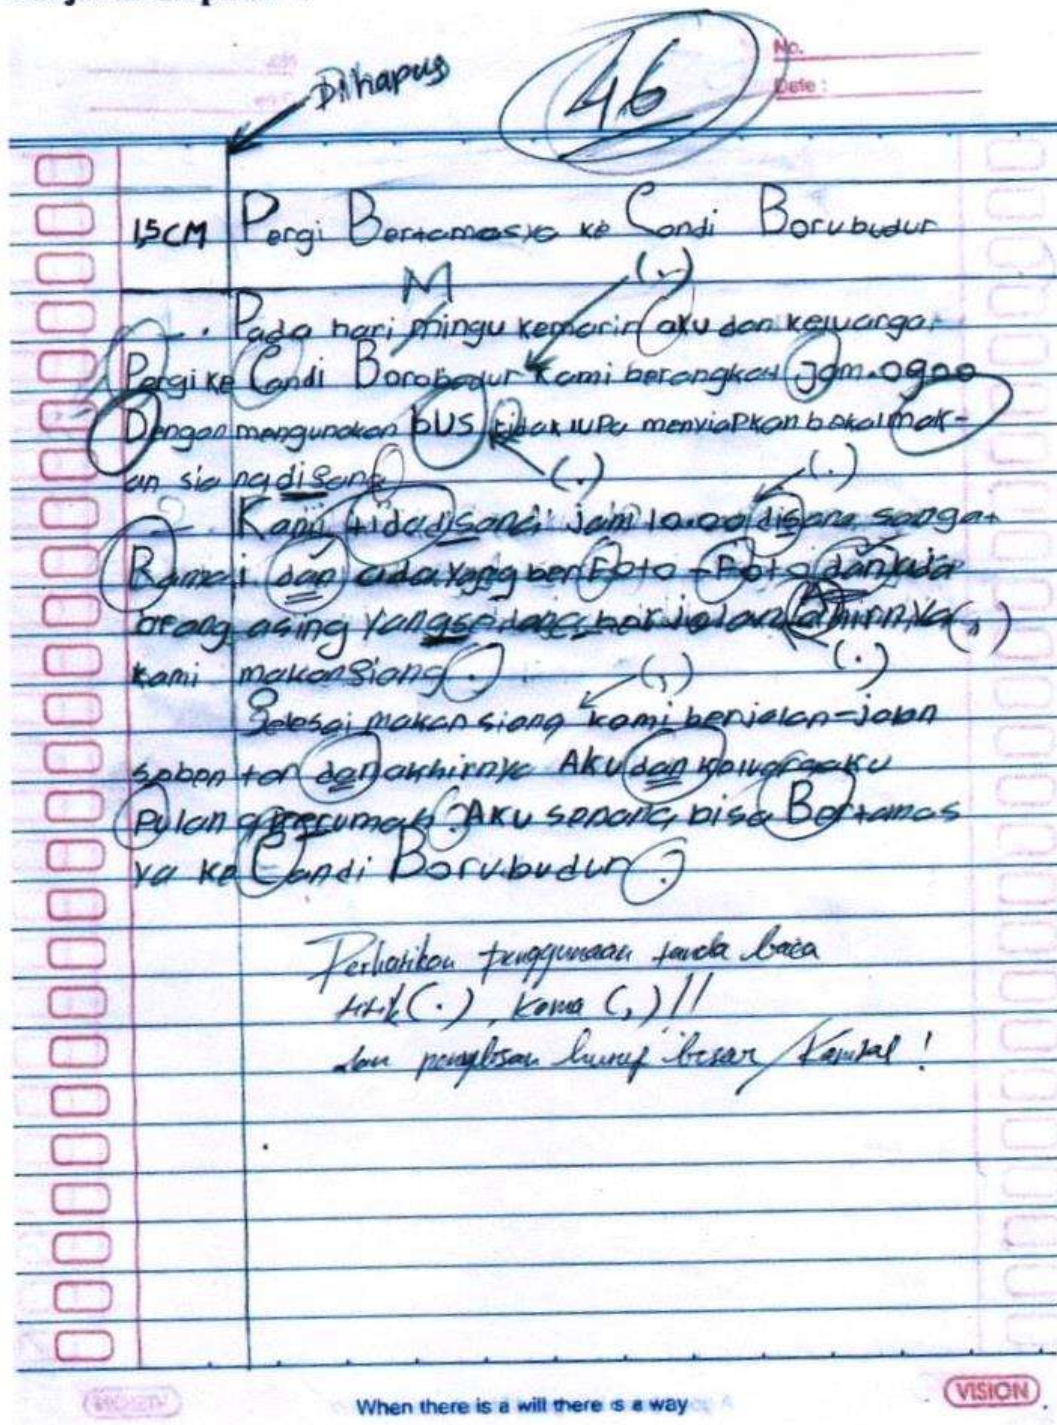 Dihapus
46
No.
Date :
1,5 CM Pergi Bertamasya ke Candi Borubudur
M (.)
Pada hari mingu kemarin aku dan keluarga
Pergi ke Candi Borobudur kami berangkat jam.0900
Dengan mengunakan bUS tidak lupa menyiapkan bekal mak-
an siang disana
(.) (.)
Kami tidadisana jam 10.00 disana sangat
Ramai dan ada yang ber Foto - Foto dan ada
orang asing yangsedang berjalan ahirnya (,)
kami makansiang . (.)
(,)
Selesai makan siang kami berjalan-jalan
sebentar dan akhirnya Aku dan keluargaku
Pulang kerumah . Aku senang bisa Bertamas
ya ke Candi Borubudur .
Perhatikan penggunaan tanda baca
titik (.), koma (,) //
dan penulisan huruf besar/Kapital !
When there is a will there is a way
VISION